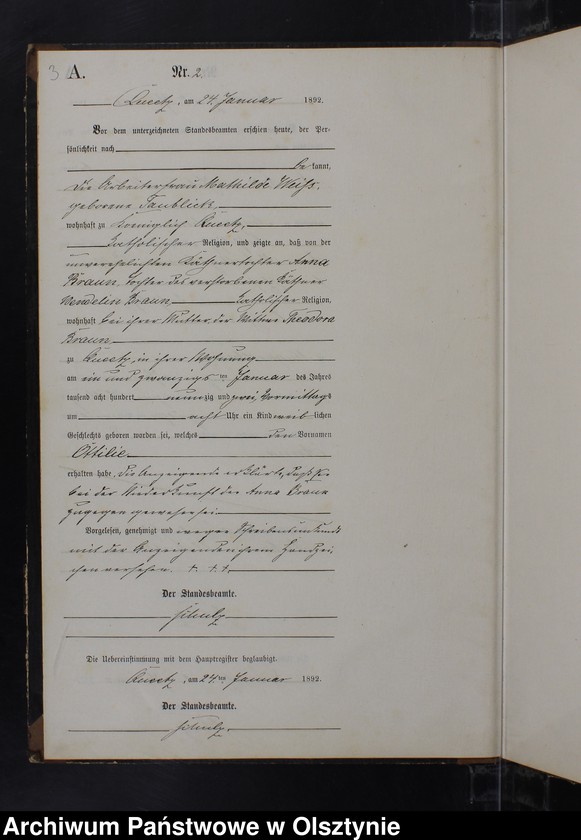 3
A. Nr. 2.
Queetz, am 24. Januar 1892.
Vor dem unterzeichneten Standesbeamten erschien heute, der Per-
sönlichkeit nach
be kannt,
die Arbeiterfrau Mathilde Weiss,
geborene Taublick,
wohnhaft zu Königlich Queetz,
katholischer Religion, und zeigte an, daß von der
unverehelichten Käthnertochter Anna
Braun, Tochter des verstorbenen Käthner
Wendelin Braun katholischer Religion,
wohnhaft bei ihrer Mutter, der Wittwe Theodora
Braun
zu Queetz, in ihrer Wohnung
am ein und zwanzigsten Januar des Jahres
tausend acht hundert neunzig und zwei Vormittags
um acht Uhr ein Kind weib lichen
Geschlechts geboren worden sei, welches den Vornamen
Ottilie
erhalten habe, die Anzeigende erklärte, daß sie
bei der Niederkunft der Anna Braun
zugegen gewesen sei
Vorgelesen, genehmigt und wegen Schreibensunkunde
mit der Anzeigenden ihrem Handzei-
chen versehen. + + +
Der Standesbeamte.
Schulz
Die Uebereinstimmung mit dem Hauptregister beglaubigt.
Queetz, am 24ten Januar 1892.
Der Standesbeamte.
Schulz.
Archiwum Państwowe w Olsztynie